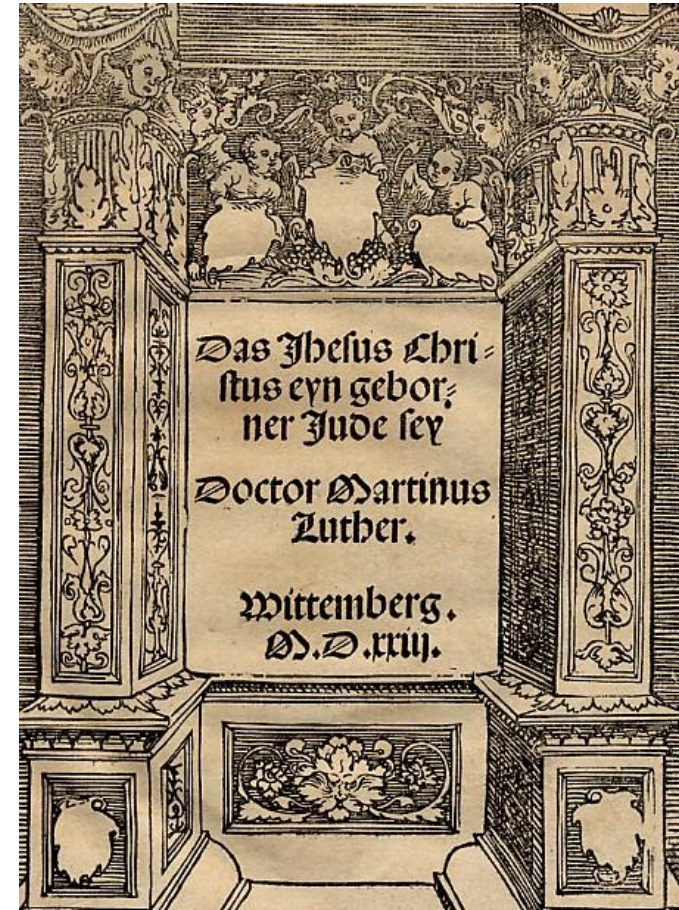 Das Jhesus Chri⸗
stus eyn gebor⸗
ner Jude sey
Doctor Martinus
Luther.
Wittemberg.
M.D.xxiij.